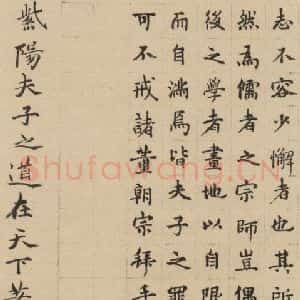 志不容少懈者也其所
然爲儒者之宗師豈偶
後之學者畫地以自限
而自滿焉皆夫子之罪
可不戒諸黃朝宗拜手
紫陽夫子之道在天下若
ShufaWang.CN